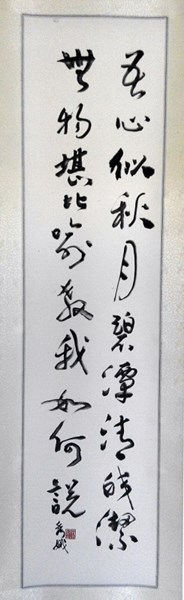 吾心似秋月碧潭清皎潔
無物堪比喻教我如何説